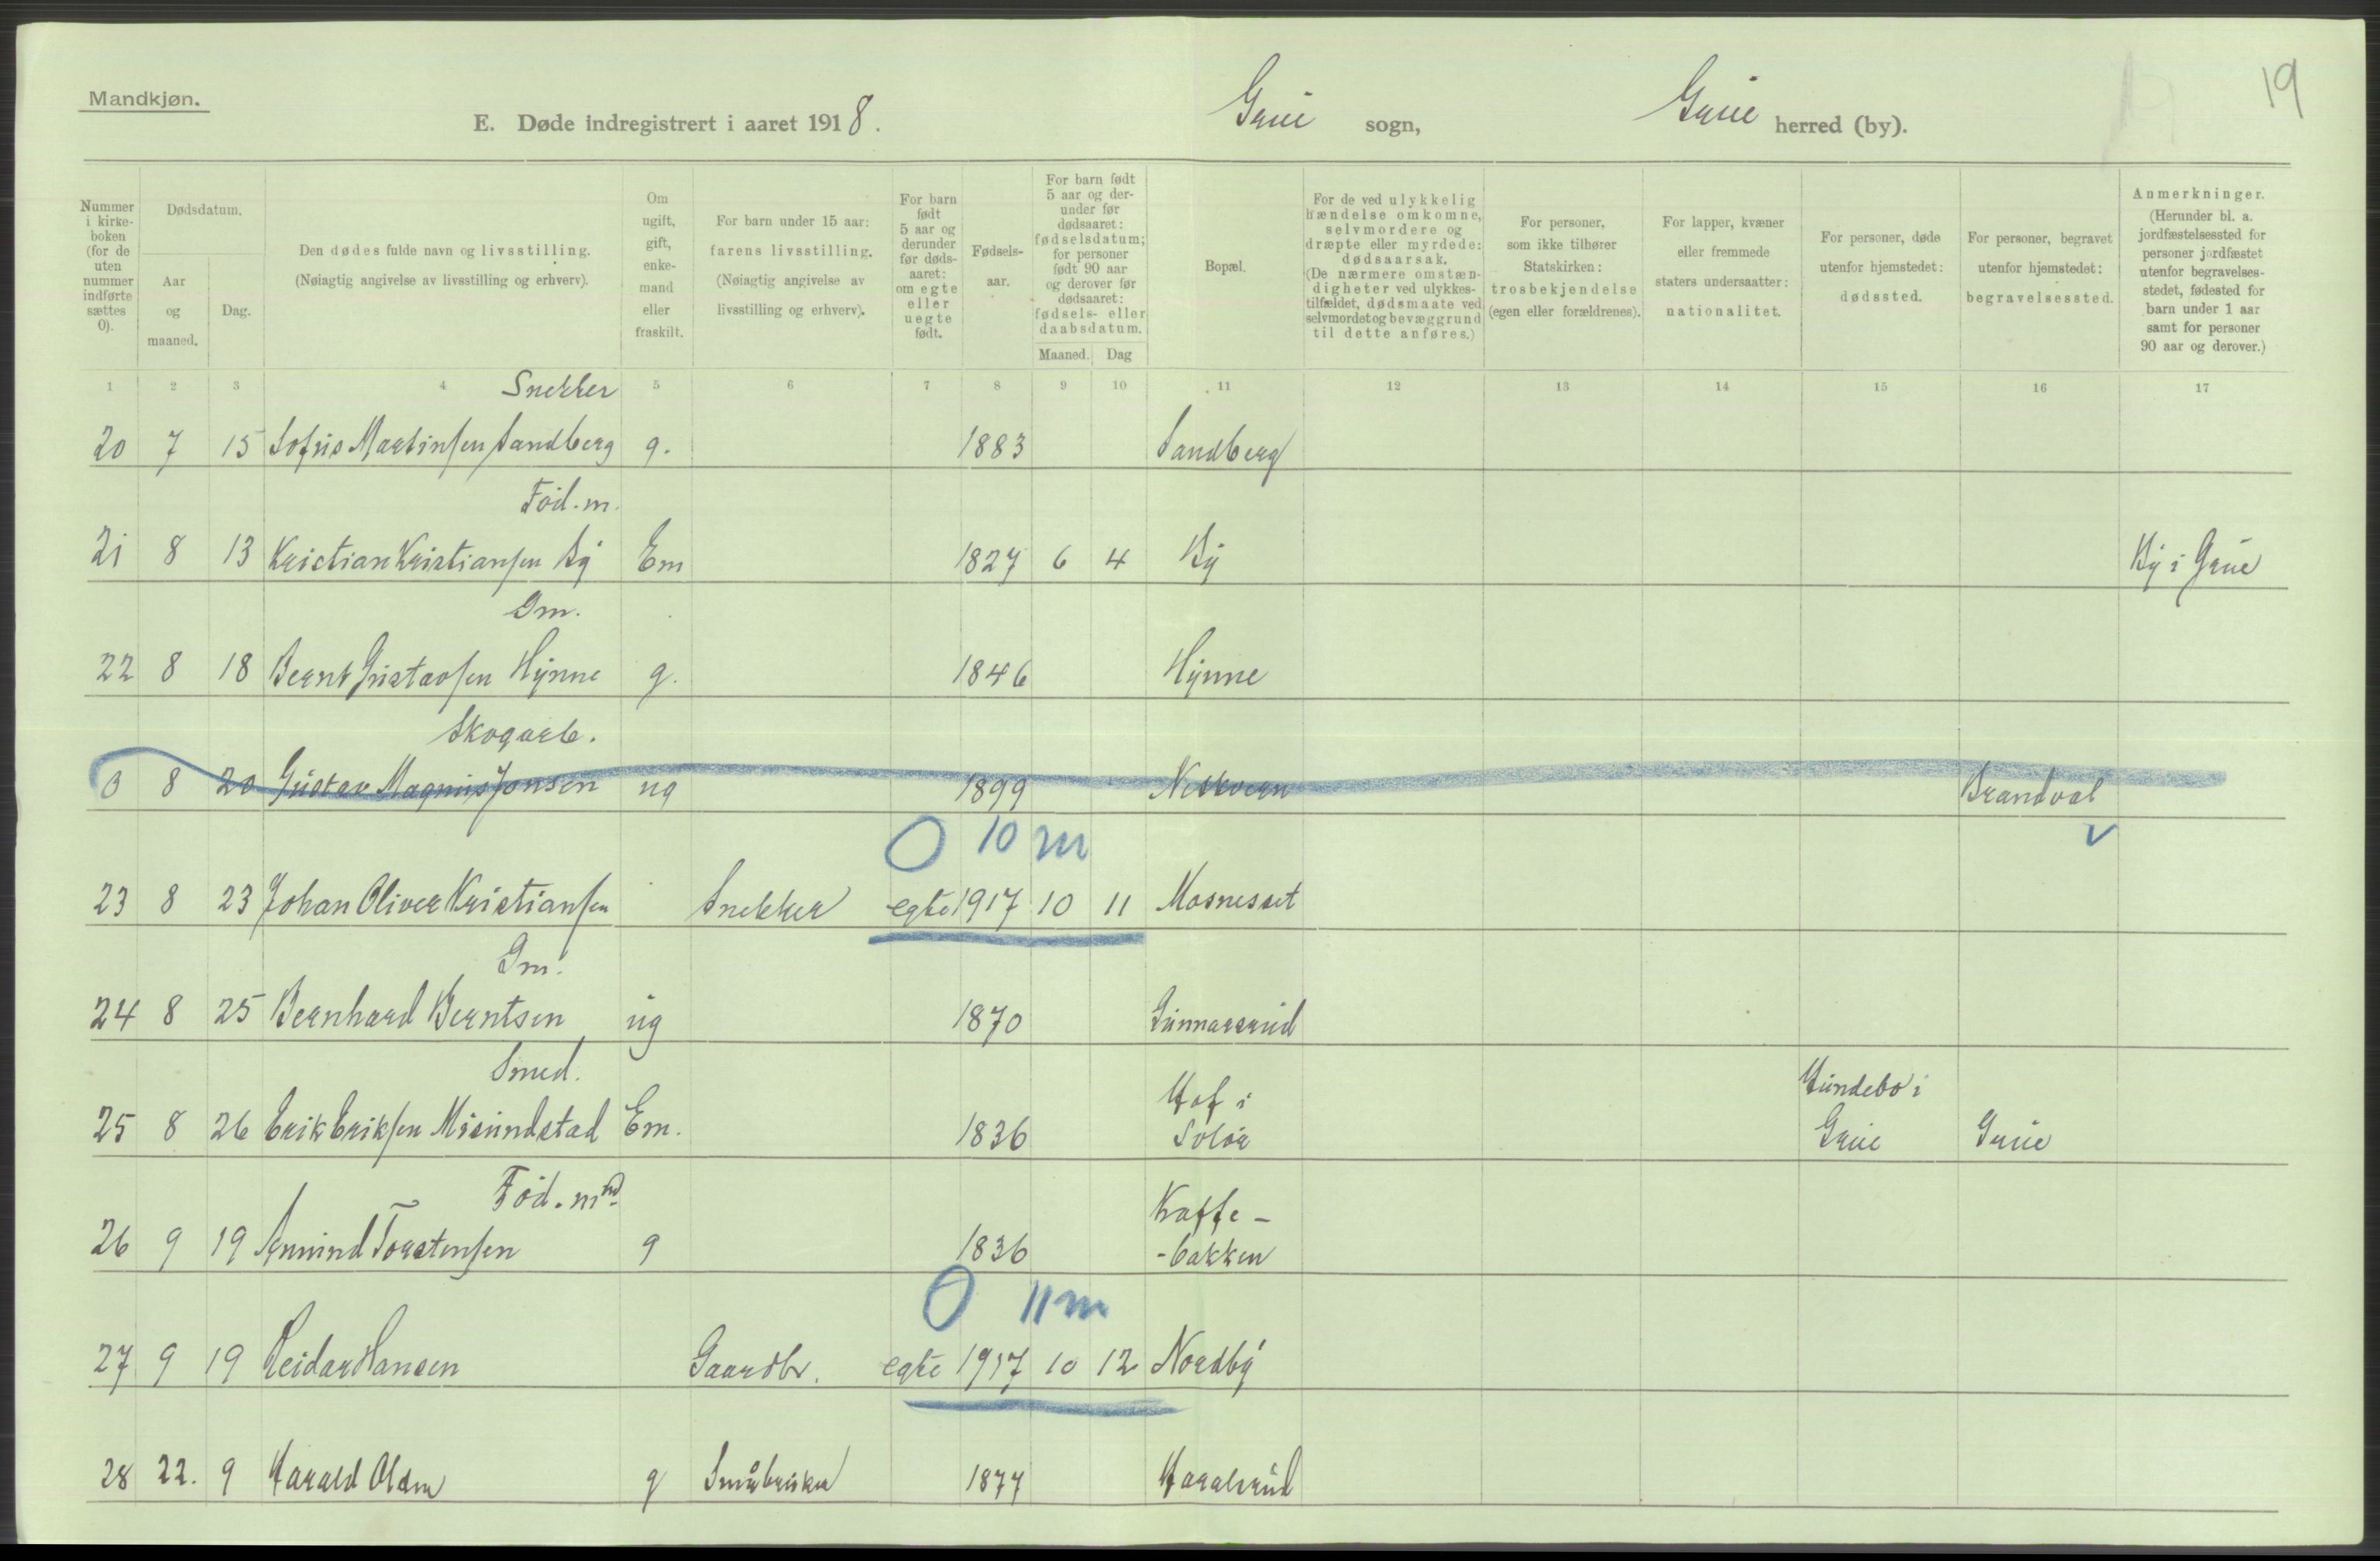 19
Mandkjøn.
E. Døde indregistrert i aaret 1918. Grue sogn, Grue herred (by).
Nummer i kirkeboken (for de uten nummer indførte sættes 0).
Dødsdatum.
Aar og maaned.
Dag.
Den dødes fulde navn og livsstilling.
(Nøiagtig angivelse av livsstilling og erhverv).
Om ugift, gift, enkemand eller fraskilt.
For barn under 15 aar: farens livsstilling.
(Nøiagtig angivelse av livsstilling og erhverv).
For barn født 5 aar og derunder før dødsaaret: om egte eller uegte født.
Fødselsaar.
For barn født 5 aar og derunder før dødsaaret: fødselsdatum; for personer født 90 aar og derover før dødsaaret: fødsels- eller daabsdatum.
Maaned. Dag
Bopæl.
For de ved ulykkelig hændelse omkomne, selvmordere og dræpte eller myrdede: dødsaarsak.
(De nærmere omstændigheter ved ulykkestilfældet, dødsmaate ved selvmordet og bevæggrund til dette anføres.)
For personer, som ikke tilhører Statskirken: trosbekjendelse (egen eller forældrenes).
For lapper, kvæner eller fremmede staters undersaatter: nationalitet.
For personer, døde utenfor hjemstedet: dødssted.
For personer, begravet utenfor hjemstedet: begravelsessted.
Anmerkninger.
(Herunder bl. a. jordfæstelsessted for personer jordfæstet utenfor begravelsesstedet, fødested for barn under 1 aar samt for personer 90 aar og derover.)
1 2 3 4 5 6 7 8 9 10 11 12 13 14 15 16 17
Snekker
20 7 15 Sofus Martinsen Sandberg g. 1883 Sandberg
Föd. m.
21 8 13 Kristian Kristiansen By Em 1827 6 4 By By i Grue
Gm.
22 8 18 Bernt Gustavsen Hynne g. 1846 Hynne
Skogarb.
0 8 20 Gustav Magnus Jonsen ug 1899 Neskvern Brandval
0 10 m
23 8 23 Johan Oliver Kristiansen Snekker egte 1917 10 11 Mosnesset
Gm.
24 8 25 Bernhard Berntsen ug 1870 Gunnarsrud
Smed.
25 8 26 Erik Eriksen Misundstad Em. 1836 Hof i Solör Hundebo i Grue Grue
Föd. md.
26 9 19 Arnund Torstensen g 1836 Kaffe-
-bakken
0 11 m
27 9 19 Reidar Hansen Gaardbr. egte 1917 10 12 Nordby
28 22. 9 Harald Olsen g Småbruker 1877 Haralsrud